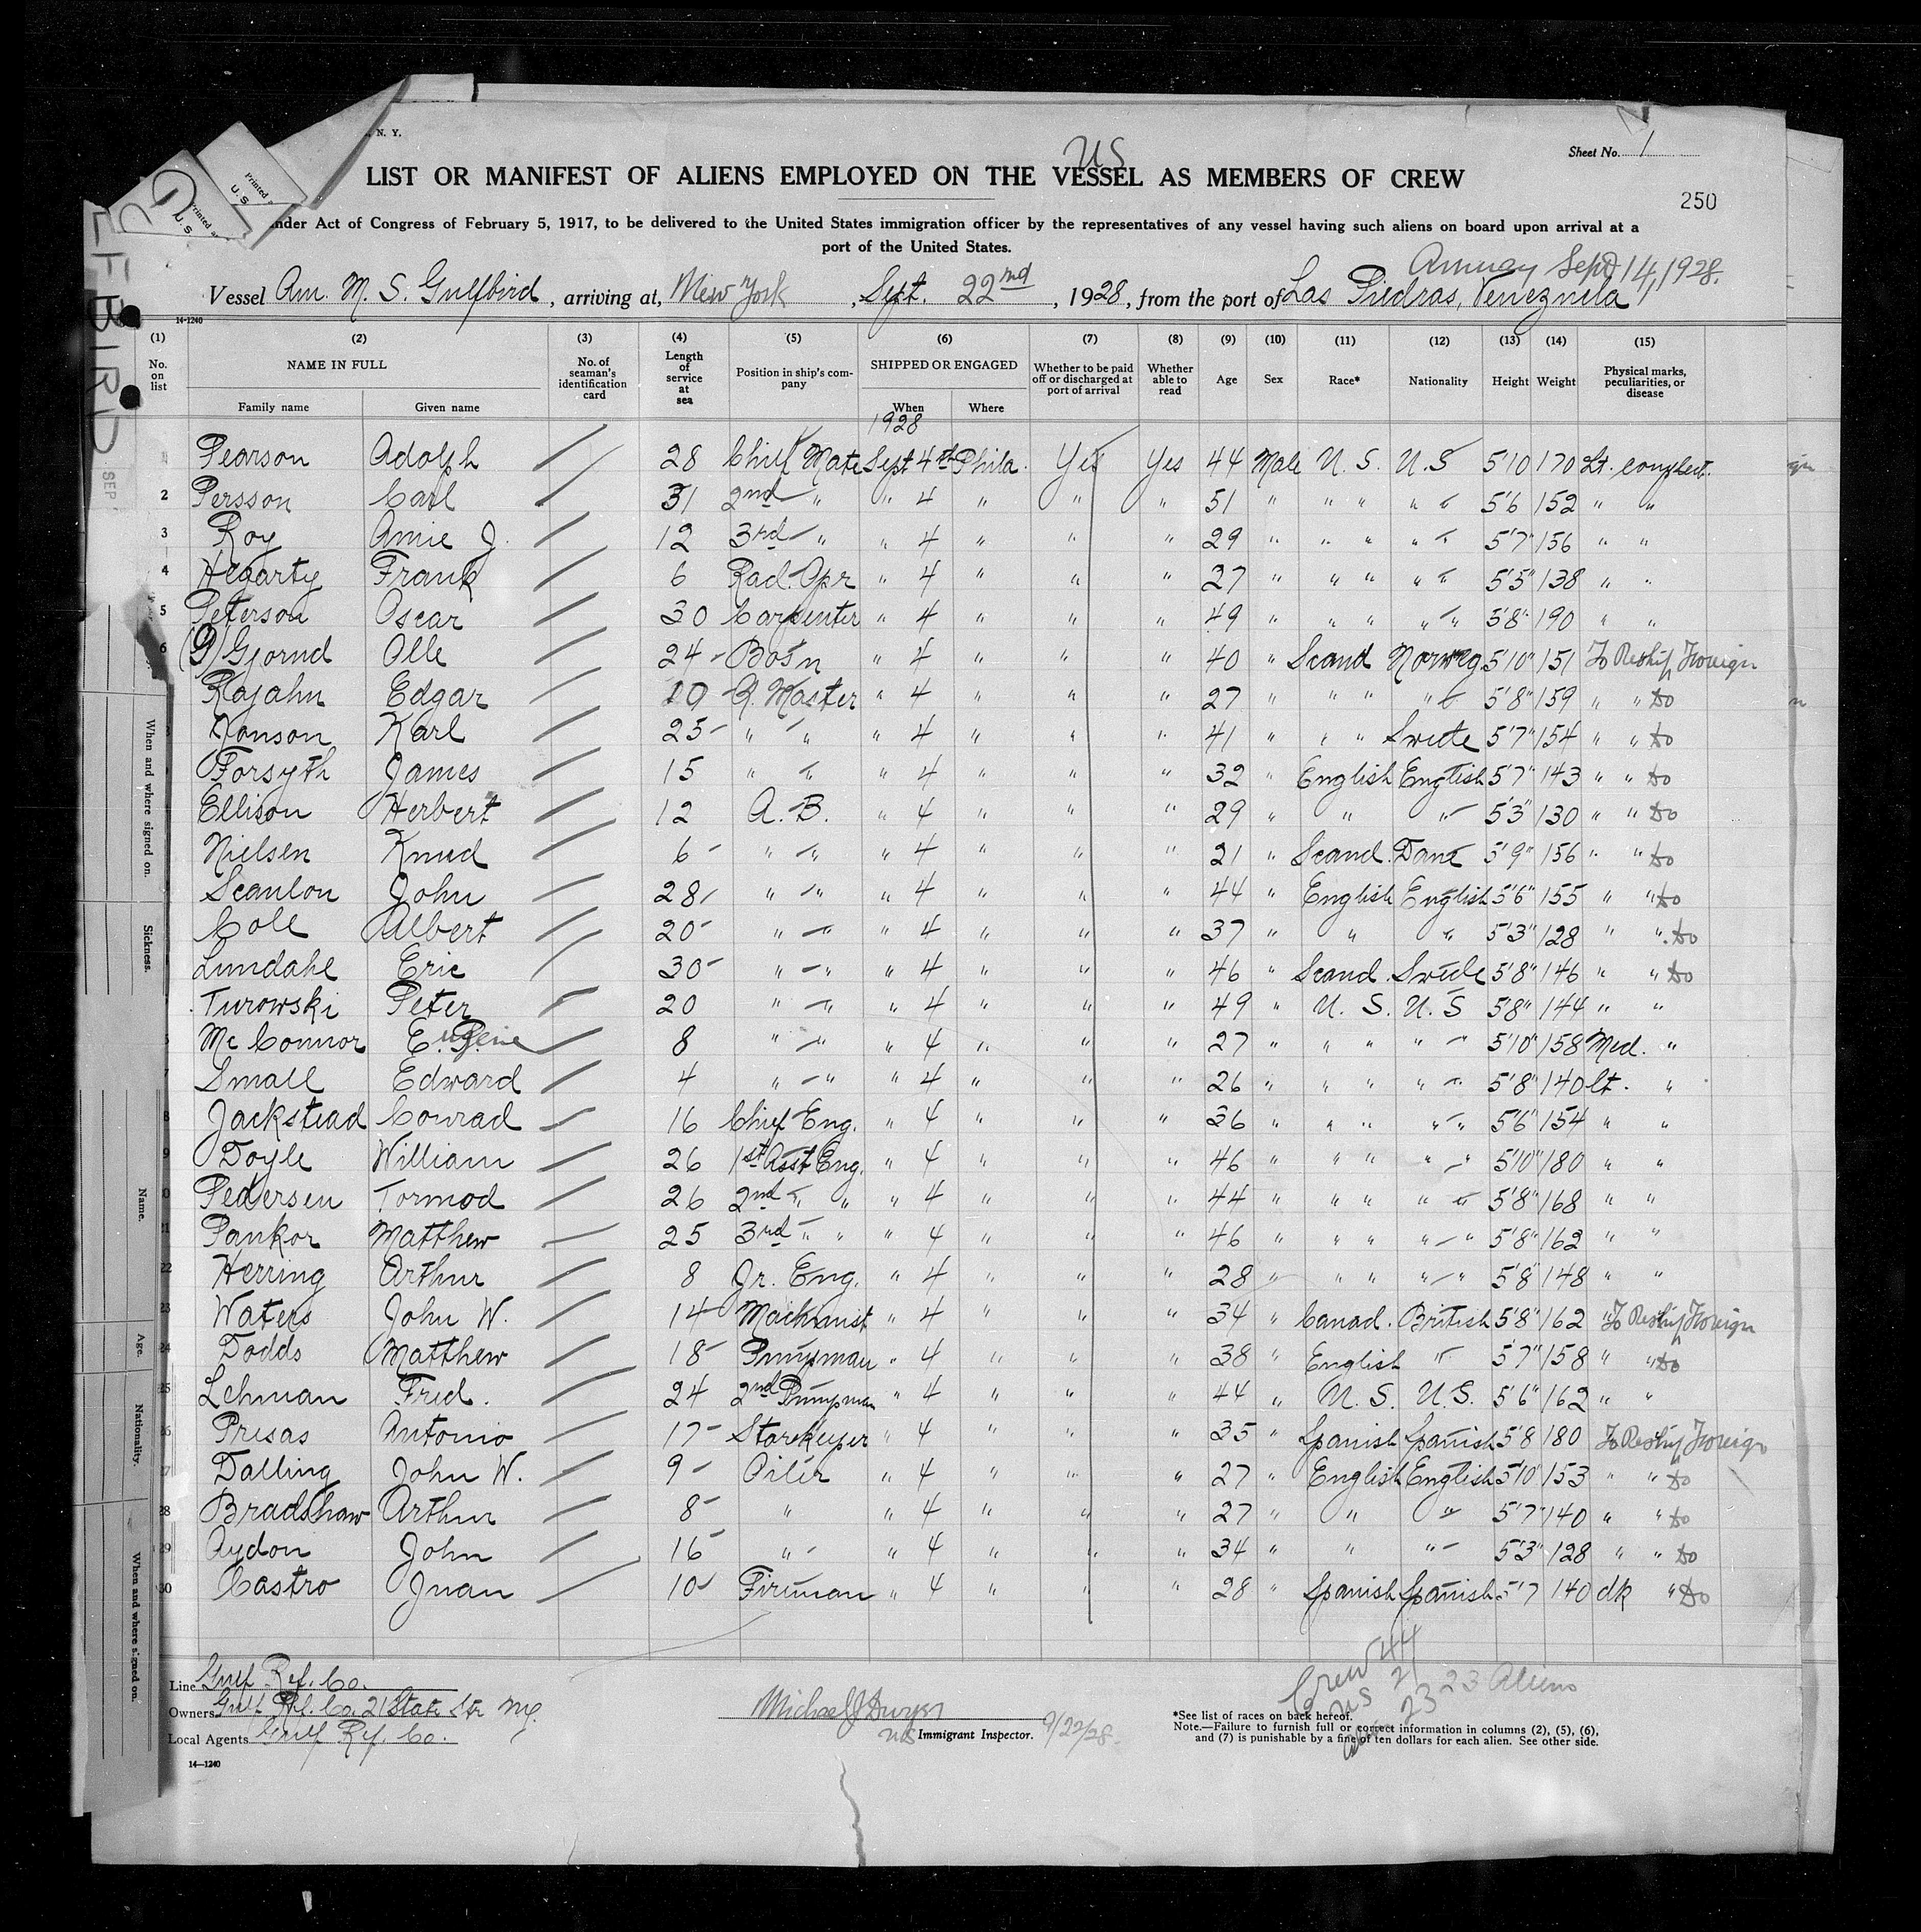 N. Y.
Sheet No. 1
US
LIST OR MANIFEST OF ALIENS EMPLOYED ON THE VESSEL AS MEMBERS OF CREW
250
nder Act of Congress of February 5, 1917, to be delivered to the United States immigration officer by the representatives of any vessel having such aliens on board upon arrival at a
port of the United States.
Amuay Sept 14, 1928.
Vessel Am. M. S. Gulfbird, arriving at, New York, Sept. 22nd, 1928, from the port of Las Piedras, Venezuela
14-1240
(1) (2) (3) (4) (5) (6) (7) (8) (9) (10) (11) (12) (13) (14) (15)
No. on list NAME IN FULL No. of seaman's identification card Length of service at sea Position in ship's company SHIPPED OR ENGAGED Whether to be paid off or discharged at port of arrival Whether able to read Age Sex Race* Nationality Height Weight Physical marks, peculiarities, or disease
Family name Given name When Where
1928
Pearson Adolph 28 Chief Mate Sept 4th Phila. Yes Yes 44 Male U. S. U. S 5'10 170 Lt. complect.
2 Persson Carl 31 2nd " " 4 " " " 51 " " " " " 5'6 152 " "
3 Roy Amie J. 12 3rd " " 4 " " " 29 " " " " " 5'7" 156 " "
4 Hegarty Frank 6 Rad. Opr " 4 " " " 27 " " " " " 5'5" 138 " "
5 Peterson Oscar 30 Carpenter " 4 " " " 49 " " " " " 5'8" 190 " "
6 (9) Gjornd Olle 24 - Bos'n " 4 " " " 40 " Scand Norweg 5'10" 151 To Reship Foreign
Rajahn Edgar 10 Q. Master " 4 " " " 27 " " " " " 5'8" 159 " " do
Karl 25 - " " " 4 " " " 41 " " " Swede 5'7" 154 " " do
Forsyth James 15 " " " 4 " " " 32 " English English 5'7" 143 " " do
Ellison Herbert 12 A. B. " 4 " " " 29 " " " 5'3" 130 " " do
Nielsen Knud 6 - " " " 4 " " " 21 " Scand. Dane 5'9" 156 " " do
Scanlon John 28 " " " 4 " " " 44 " English English 5'6" 155 " " do
Cole Albert 20 - " " " 4 " " " 37 " " " 5'3" 128 " " do
Lundahl Eric 30 - " " " 4 " " " 46 " Scand. Swede 5'8" 146 " " do
Turowski Peter 20 " " " 4 " " " 49 " U. S. U. S 5'8" 144 " "
Mc Connor Eugene 8 " " " 4 " " " 27 " " " " " 5'10" 158 Med. "
Small Edward 4 " " " 4 " " " 26 " " " " " 5'8" 140 lt. "
Jackstead Conrad 16 Chief Eng. " 4 " " " 36 " " " " " 5'6" 154 " "
Doyle William 26 1st Asst Eng. " 4 " " " 46 " " " " " 5'10" 180 " "
Pedersen Tormod 26 2nd " " " 4 " " " 44 " " " " " 5'8" 168 " "
Pankor Matthew 25 3rd " " " 4 " " " 46 " " " " " 5'8" 162 " "
22 Herring Arthur 8 Jr. Eng. " 4 " " " 28 " " " " " 5'8" 148 " "
23 Waters John W. 14 - Machinist " 4 " " " 34 " Canad. British 5'8" 162 " To Reship Foreign
24 Dodds Matthew 18 - Pumpman " 4 " " " 38 " English " 5'7" 158 " " do
25 Lehman Fred. 24 2nd Pumpman " 4 " " " 44 " U. S. U. S. 5'6" 162 " "
Presas Antonio 17 - Storekeeper " 4 " " " 35 " Spanish Spanish 5'8 180 To Reship Foreign
Dalling John W. 9 - Oiler " 4 " " " 27 " English English 5'10" 153 " " do
28 Bradshaw Arthur 8 - " " 4 " " " 27 " " " 5'7" 140 " " do
29 Aydon John 16 - " " 4 " " " 34 " " " 5'3" 128 " " do
30 Castro Juan 10 Fireman " 4 " " " 28 " Spanish Spanish 5'7 140 dk " do
Line Gulf Ref. Co.
Owners Gulf Ref. Co. 21 State Str NY.
Local Agents Gulf Ref. Co.
14—1240
Michael J Dwyer
US Immigrant Inspector. 9/22/28.
Crew 44
US 21
23 23 Aliens
*See list of races on back hereof.
Note.—Failure to furnish full or correct information in columns (2), (5), (6),
and (7) is punishable by a fine of ten dollars for each alien. See other side.
When and where signed on.
Sickness.
Name.
Age.
Nationality.
When and where signed on.
LFBIRD
SEP
Printed
U. S